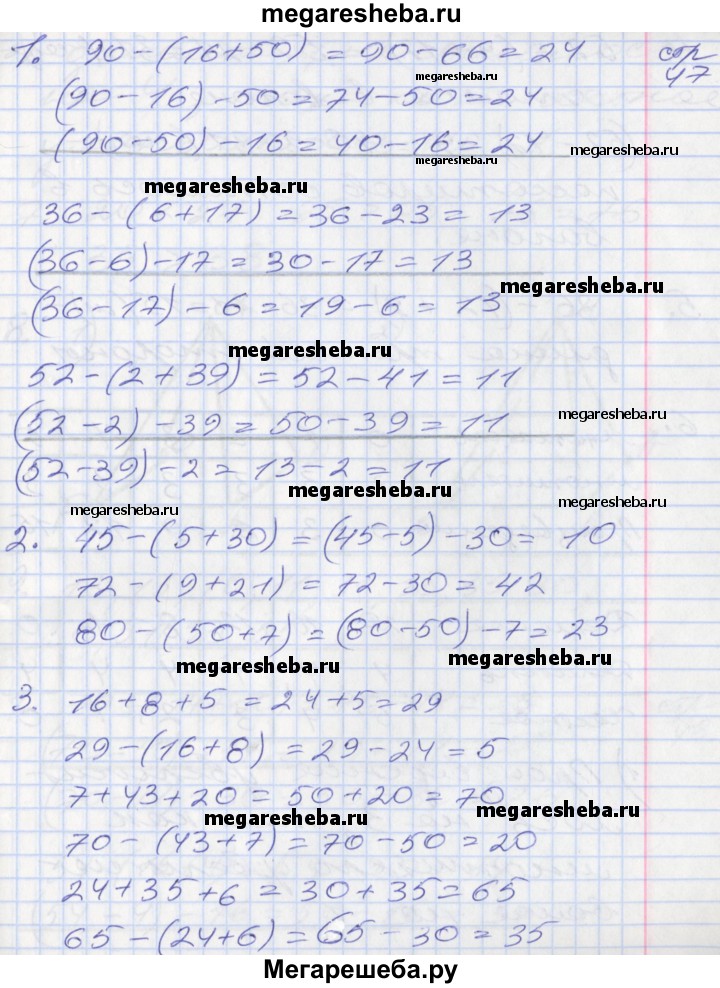 megaresheba.ru
1. 90-(16+50) = 90-66=24 стр
megaresheba.ru 47
(90-16)-50=74-50=24
megaresheba.ru
(90-50)-16=40-16=24 megaresheba.ru
megaresheba.ru
megaresheba.ru
36-(6+17)=36-23=13
(36-6)-17=30-17=13
megaresheba.ru
(36-17)-6=19-6=13
megaresheba.ru
52-(2+39)=52-41=11
(52-2)-39=50-39=11 megaresheba.ru
(52-39)-2=13-2=11
megaresheba.ru
megaresheba.ru megaresheba.ru
2. 45-(5+30)=(45-5)-30=10
72-(9+21)=72-30=42
80-(50+7)=(80-50)-7=23
megaresheba.ru megaresheba.ru
3. 16+8+5=24+5=29
29-(16+8)=29-24=5
7+43+20=50+20=70
megaresheba.ru megaresheba.ru
70-(43+7)=70-50=20
24+35+6=30+35=65
65-(24+6)=65-30=35
Мегарешеба.ру